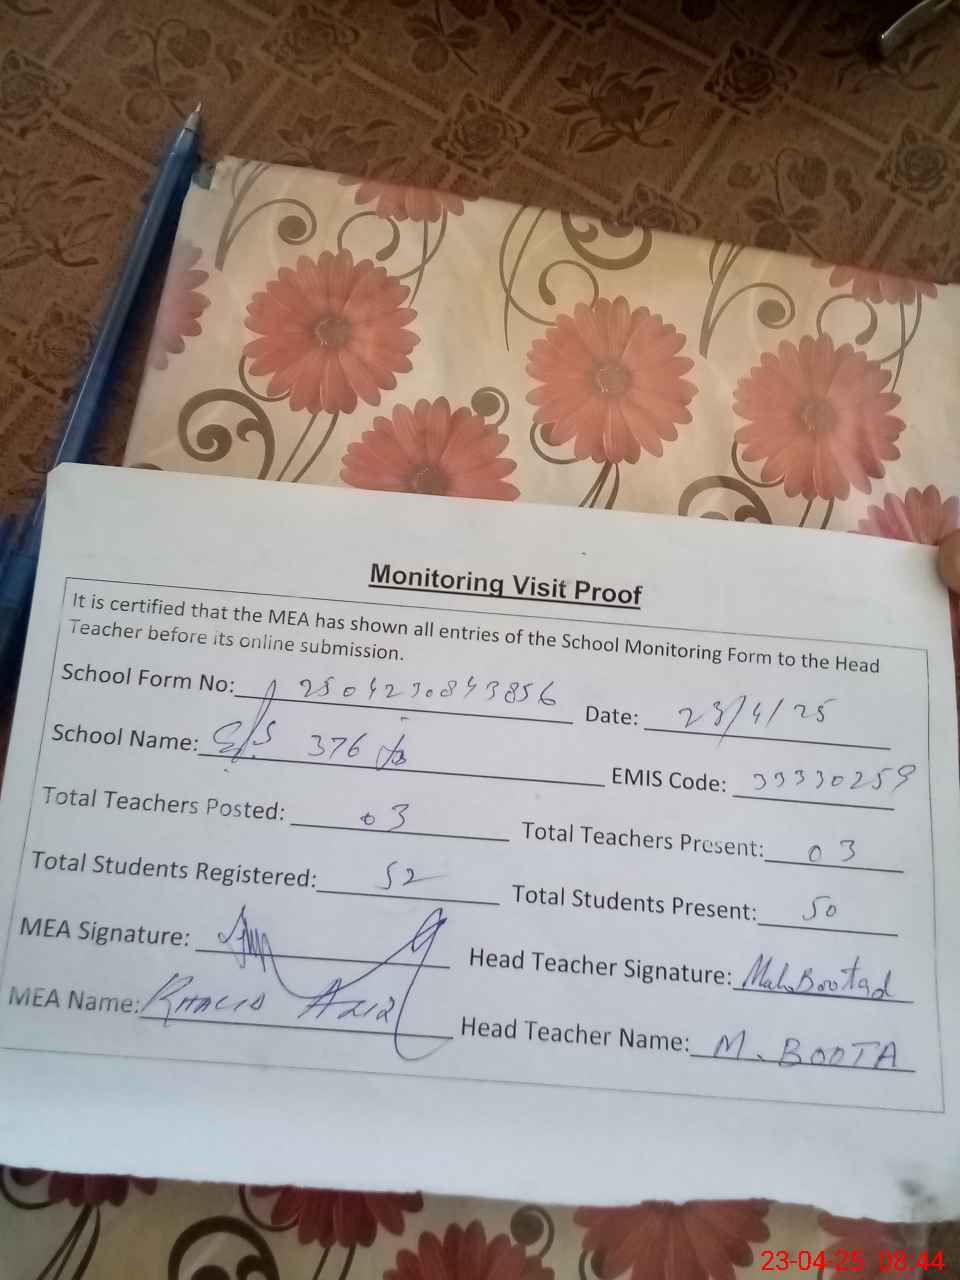 Monitoring Visit Proof
It is certified that the MEA has shown all entries of the School Monitoring Form to the Head
Teacher before its online submission.
School Form No: 2504230843856 Date: 23/4/25
School Name: 376 EMIS Code: 33330259
Total Teachers Posted: 03 Total Teachers Present: 03
Total Students Registered: 52 Total Students Present: 50
MEA Signature: Head Teacher Signature:
MEA Name: KHALID AZIZ Head Teacher Name: M. BOOTA
23-04-25 08:44